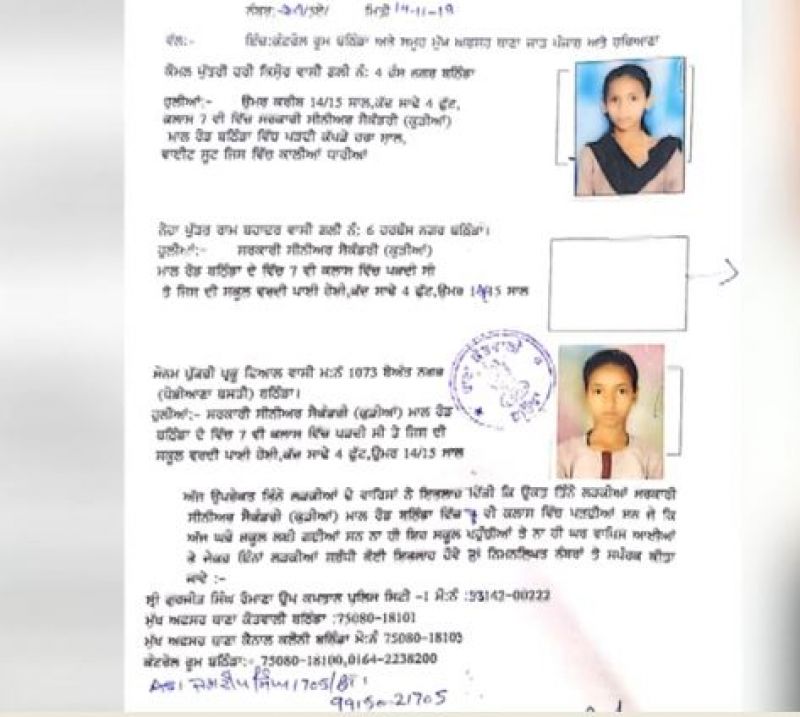 ਨੰਬਰ:- ਮਿਤੀ 14-11-19
ਵੱਲ:- ਇੰਚ:ਕੰਟਰੋਲ ਰੂਮ ਬਠਿੰਡਾ ਅਤੇ ਸਮੂਹ ਮੁੱਖ ਅਫਸਰ ਥਾਣਾ ਜਾਤ ਪੰਜਾਬ ਅਤੇ ਹਰਿਆਣਾ
ਕੋਮਲ ਪੁੱਤਰੀ ਹਰੀ ਕਿਸ਼ੋਰ ਵਾਸੀ ਗਲੀ ਨੰ: 4 ਹੰਸ ਨਗਰ ਬਠਿੰਡਾ
ਹੁਲੀਆਂ:- ਉਮਰ ਕਰੀਬ 14/15 ਸਾਲ,ਕੱਦ ਸਾਢੇ 4 ਫੁੱਟ,
ਕਲਾਸ 7 ਵੀ ਵਿੱਚ ਸਰਕਾਰੀ ਸੀਨੀਅਰ ਸੈਕੰਡਰੀ (ਕੁੜੀਆਂ)
ਮਾਲ ਰੋਡ ਬਠਿੰਡਾ ਵਿੱਚ ਪੜਦੀ ਕੱਪੜੇ ਹਰਾ ਸਾਲ,
ਵਾਈਟ ਸੂਟ ਜਿਸ ਵਿੱਚ ਕਾਲੀਆਂ ਧਾਰੀਆਂ
ਨੇਹਾ ਪੁੱਤਰ ਰਾਮ ਬਹਾਦਰ ਵਾਸੀ ਗਲੀ ਨੰ: 6 ਹਰਬੰਸ ਨਗਰ ਬਠਿੰਡਾ।
ਹੁਲੀਆਂ:- ਸਰਕਾਰੀ ਸੀਨੀਅਰ ਸੈਕੰਡਰੀ (ਕੁੜੀਆਂ)
ਮਾਲ ਰੋਡ ਬਠਿੰਡਾ ਦੇ ਵਿੱਚ 7 ਵੀ ਕਲਾਸ ਵਿੱਚ ਪੜਦੀ ਸੀ
ਤੇ ਜਿਸ ਦੀ ਸਕੂਲ ਵਰਦੀ ਪਾਈ ਹੋਈ,ਕੱਦ ਸਾਢੇ 4 ਫੁੱਟ,ਉਮਰ 14/15 ਸਾਲ
ਸੋਨਮ ਪੁੱਤਰੀ ਪ੍ਰਭੂ ਦਿਆਲ ਵਾਸੀ ਮ:ਨੰ 1073 ਬੇਅੰਤ ਨਗਰ
(ਧੋਬੀਆਣਾ ਬਸਤੀ) ਬਠਿੰਡਾ।
ਹੁਲੀਆਂ:- ਸਰਕਾਰੀ ਸੀਨੀਅਰ ਸੈਕੰਡਰੀ (ਕੁੜੀਆਂ) ਮਾਲ ਰੋਡ
ਬਠਿੰਡਾ ਦੇ ਵਿੱਚ 7 ਵੀ ਕਲਾਸ ਵਿੱਚ ਪੜਦੀ ਸੀ ਤੇ ਜਿਸ ਦੀ
ਸਕੂਲ ਵਰਦੀ ਪਾਈ ਹੋਈ,ਕੱਦ ਸਾਢੇ 4 ਫੁੱਟ,ਉਮਰ 14/15 ਸਾਲ
ਅੱਜ ਉਪਰੋਕਤ ਤਿੰਨੋ ਲੜਕੀਆਂ ਦੇ ਵਾਰਿਸਾਂ ਨੇ ਇਤਲਾਹ ਦਿੱਤੀ ਕਿ ਉਕਤ ਤਿੰਨੋ ਲੜਕੀਆਂ ਸਰਕਾਰੀ
ਸੀਨੀਅਰ ਸੈਕੰਡਰੀ (ਕੁੜੀਆਂ) ਮਾਲ ਰੋਡ ਬਠਿੰਡਾ ਵਿੱਚ 7 ਵੀ ਕਲਾਸ ਵਿੱਚ ਪੜਦੀਆਂ ਸਨ ਜੋ ਕਿ
ਅੱਜ ਘਰੋ ਸਕੂਲ ਲਈ ਗਈਆਂ ਸਨ ਨਾ ਹੀ ਇਹ ਸਕੂਲ ਪਹੁੰਚੀਆਂ ਤੇ ਨਾ ਹੀ ਘਰ ਵਾਪਿਸ ਆਈਆਂ
ਕੇ ਜੇਕਰ ਇੰਨਾਂ ਲੜਕੀਆਂ ਸਬੰਧੀ ਕੋਈ ਇਤਲਾਹ ਹੋਵੇ ਤਾਂ ਨਿਮਨਲਿਖਤ ਨੰਬਰਾਂ ਤੇ ਸੰਪਰਕ ਕੀਤਾ
ਜਾਵੇ :-
ਸ੍ਰੀ ਗੁਰਜੀਤ ਸਿੰਘ ਰੋਮਾਣਾ ਉਪ ਕਪਤਾਨ ਪੁਲਿਸ ਸਿਟੀ -1 ਮੋ:ਨੰ :93142-00222
ਮੁੱਖ ਅਫਸਰ ਥਾਣਾ ਕੋਤਵਾਲੀ ਬਠਿੰਡਾ :75080-18101
ਮੁੱਖ ਅਫਸਰ ਥਾਣਾ ਕੈਨਾਲ ਕਲੋਨੀ ਬਠਿੰਡਾ ਮੋ:ਨੰ 75080-18103
ਕੰਟਰੋਲ ਰੂਮ ਬਠਿੰਡਾ:- 75080-18100,0164-2238200
ASI ਜਗਦੀਪ ਸਿੰਘ 1705/BTI
99150-21705